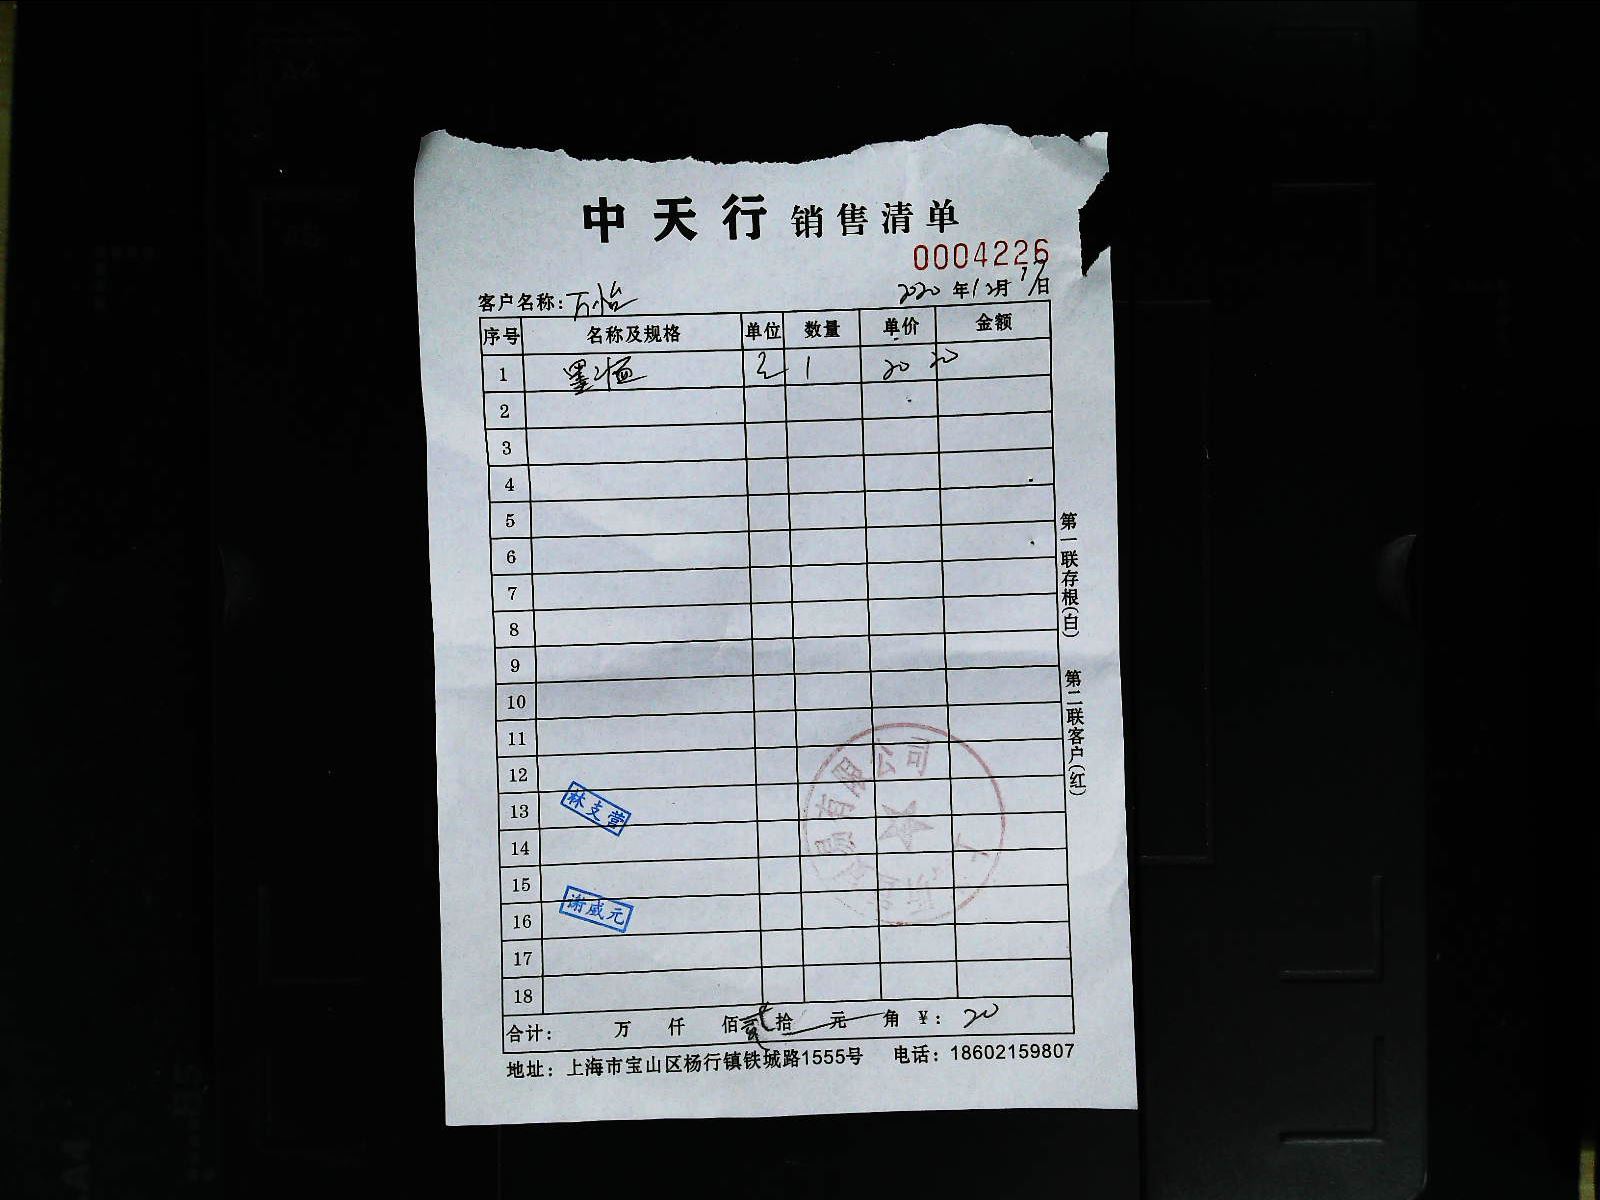 中天行 销售清单
0004226
客户名称：万怡 2020年12月17日
序号 名称及规格 单位 数量 单价 金额
1 墨恒 1 20 20
2
3
4
5
6
7
8
9
10
11
12
13 林支营
14
15
16 谢威元
17
18
合计： 万 仟 佰 贰 拾 元 角 ¥： 20
地址：上海市宝山区杨行镇铁城路1555号 电话：18602159807
第一联存根(白) 第二联客户(红)
有限公司